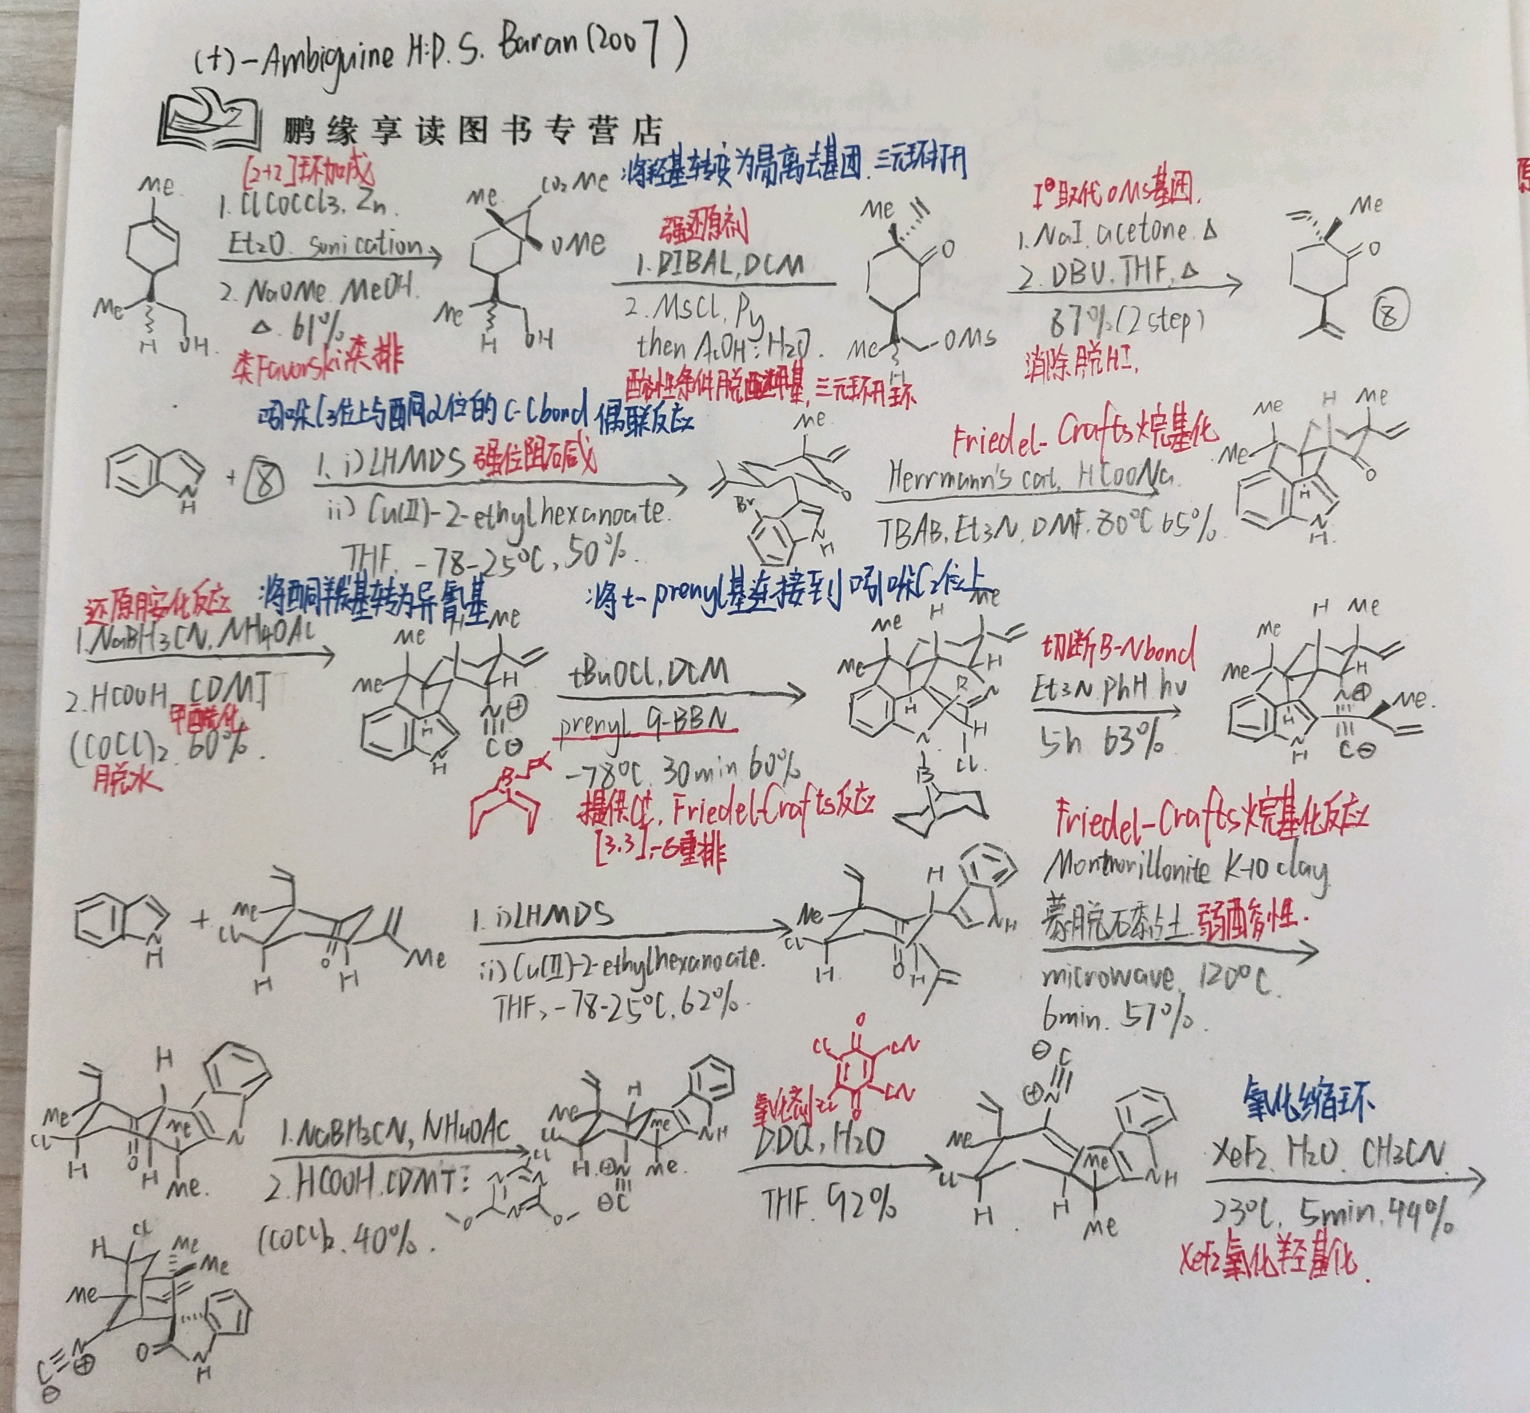 (+)-Ambiguine H: P. S. Baran (2007)
鹏缘享读图书专营店
[2+2]环加成
1. ClCOCCl3, Zn.
Et2O. sonication
2. NaOMe. MeOH.
△. 61%
类Favorski类排
Me
Me
H
OH
Me
CO2Me
OMe
Me
H
OH
:将羟基转变为易离去基团.三元环打开
强还原剂
1. DIBAL, DCM
2. MsCl, Py
then AcOH:H2O.
酸性条件脱
三元环开环
Me
O
Me
OMs
H
I⊖取代OMs基团.
1. NaI. acetone. △
2. DBU. THF. △
87% (2 step)
消除脱HI.
Me
O
⑧
吲哚C3位上与酮α位的C-C bond 偶联反应
N
H
+ ⑧
1. i) LHMDS 强位阻碱
ii) Cu(II)-2-ethylhexanoate.
THF. -78-25°C, 50%.
Me
O
Br
N
H
Friedel-Crafts烷基化
Herrmann's cat. HCOONa.
TBAB, Et3N, DMF. 80°C 65%.
Me
H
Me
Me
O
H
N
H
还原胺化反应
:将酮羰基转为异氰基
1. NaBH3CN, NH4OAc
2. HCOOH CDMT
甲酰化
(COCl)2 60%.
脱水
Me
H
Me
Me
H
H
N⊕
C⊖
N
H
:将t-prenyl基连接到吲哚C2位上
tBuOCl, DCM
prenyl 9-BBN
-78°C. 30min 60%
B
提供Cl⁺, Friedel-Crafts反应
[3.3]-σ重排
Me
H
Me
Me
H
H
N
H
N
Cl
B
切断B-N bond
Et3N phH hν
5h 63%.
Me
H
Me
Me
H
H
N⊕
C⊖
Me.
N
H
N
H
+
Me
Cl
H
O
H
Me
1. i) LHMDS
ii) Cu(II)-2-ethylhexanoate.
THF, -78-25°C. 62%.
Me
Cl
H
O
H
H
N
H
Friedel-Crafts烷基化反应
Montmorillonite K-10 clay
蒙脱石黏土 弱酸性.
microwave. 120°C.
6min. 57%.
Me
Cl
H
H
O
H
Me
Me.
N
1. NaBH3CN, NH4OAc
2. HCOOH. CDMT:
(COCl)2. 40%.
Cl
N
N
N
O
O
Me
Cl
H
H
Me
Me.
NH
N⊕
⊖C
氧化剂
Cl
Cl
O
O
CN
CN
DDQ, H2O
THF. 92%
⊖
C
⊕N
Me
Cl
H
H
Me
Me
NH
氧化缩环
XeF2. H2O. CH3CN
23°C. 5min. 44%.
XeF2氧化羟基化.
H
Cl
Me
Me
Me
C
⊖
N
⊕
O
N
H